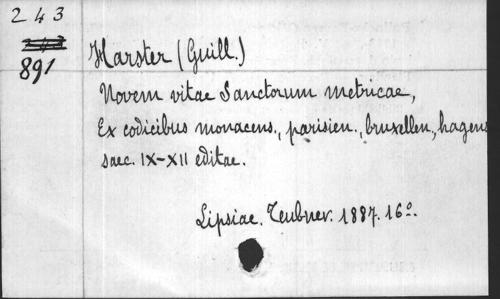 243
891
Harster (Guill.)
Novem vitae Sanctorum metricae,
Ex codicibus monacens., parisien., bruxellen., hagens
saec. IX-XII editae.
Lipsiae. Teubner. 1887. 16°.